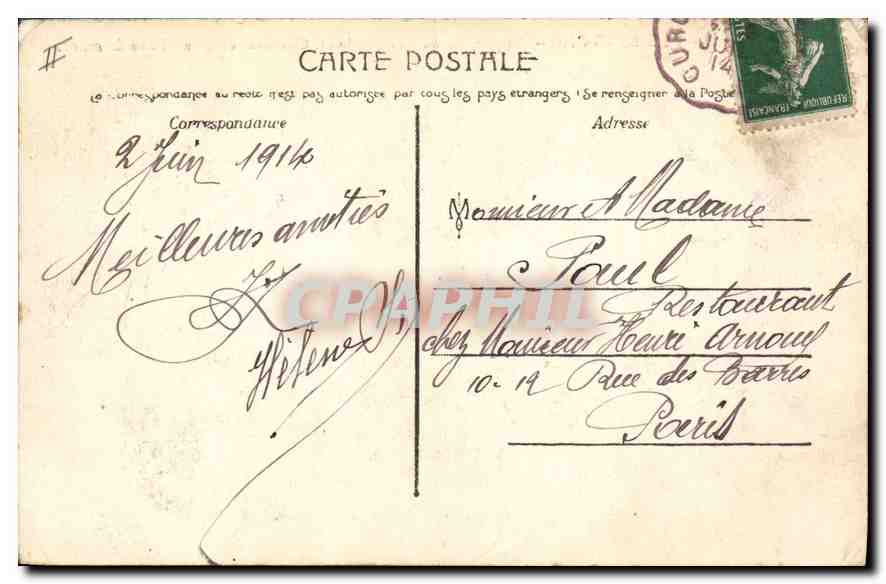 II
CARTE POSTALE
La Correspondance au recto n'est pas autorisée par tous les pays étrangers (Se renseigner à la Poste
Correspondance
Adresse
2 Juin 1914
Meilleures amitiés
Hélène
Monsieur et Madame
Paul
Restaurant
chez Monsieur Henri Arnoul
10-12 Rue des Barres
Paris
JU
14
REPUBLIQUE FRANCAISE
POSTES
CPAPHIL